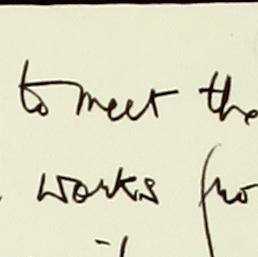 to meet the
works fro